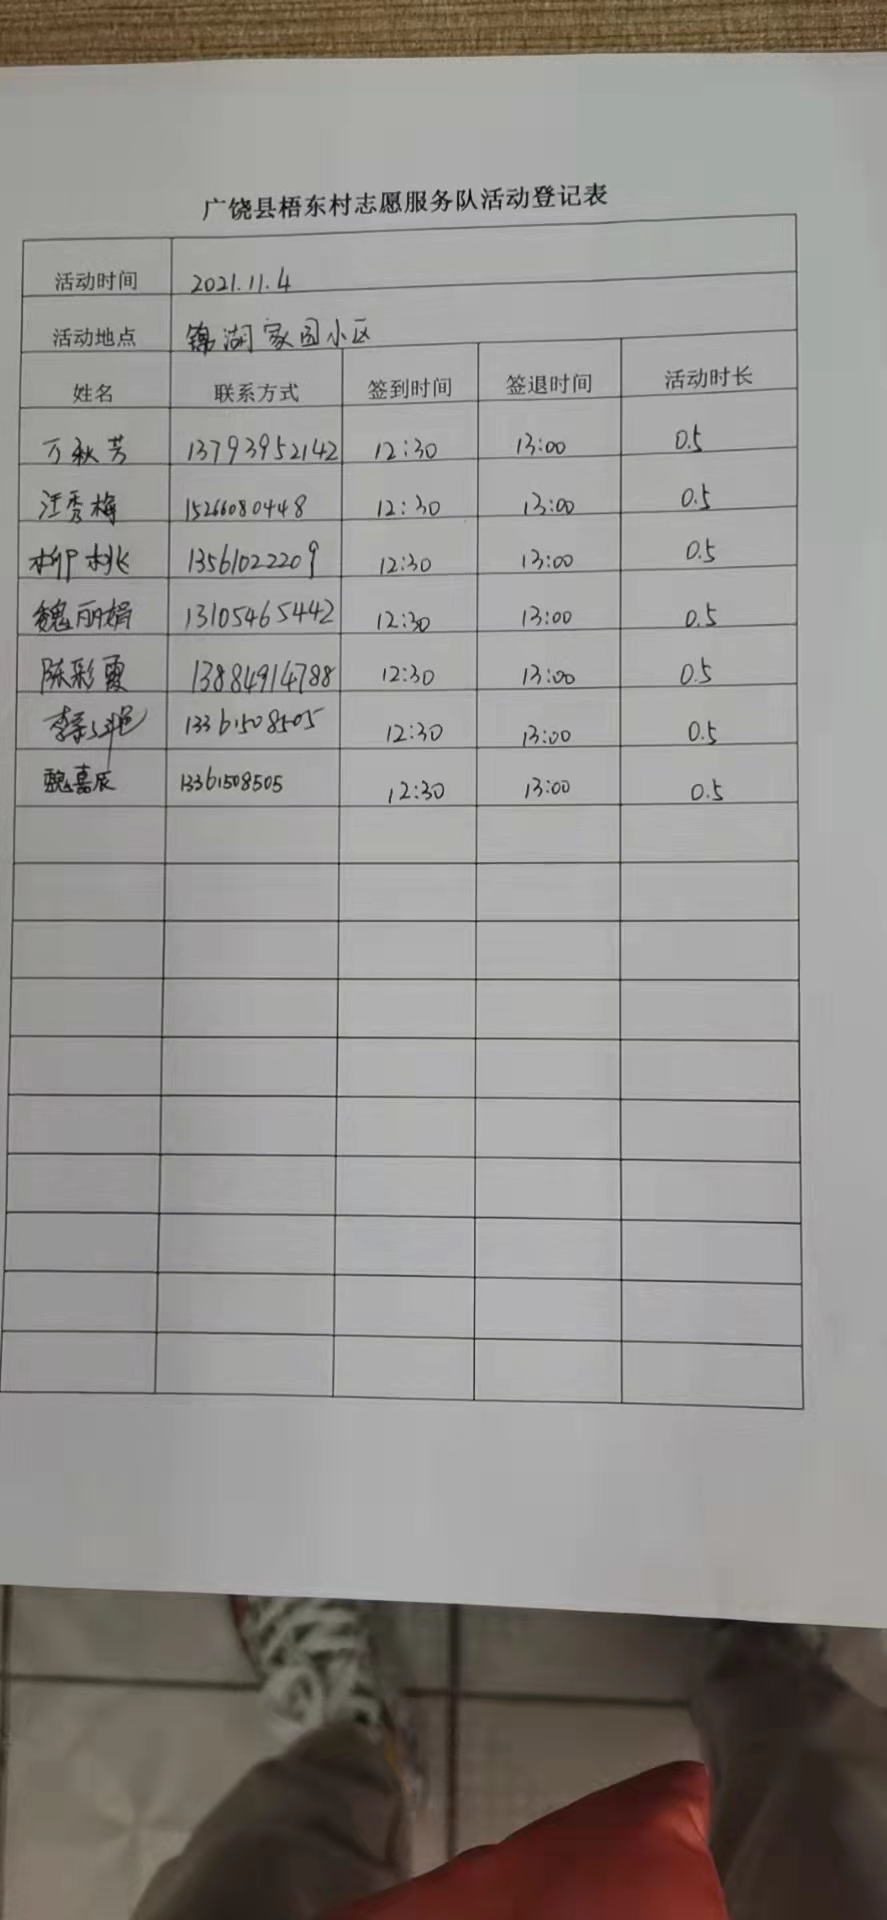 广饶县梧东村志愿服务队活动登记表
活动时间 2021.11.4
活动地点 锦湖家园小区
姓名 联系方式 签到时间 签退时间 活动时长
万秋芳 13793952142 12:30 13:00 0.5
汪秀梅 15266080448 12:30 13:00 0.5
柳桃 13561022209 12:30 13:00 0.5
魏丽娟 13105465442 12:30 13:00 0.5
陈彩霞 13884914788 12:30 13:00 0.5
13361508505 12:30 13:00 0.5
魏嘉辰 13361508505 12:30 13:00 0.5